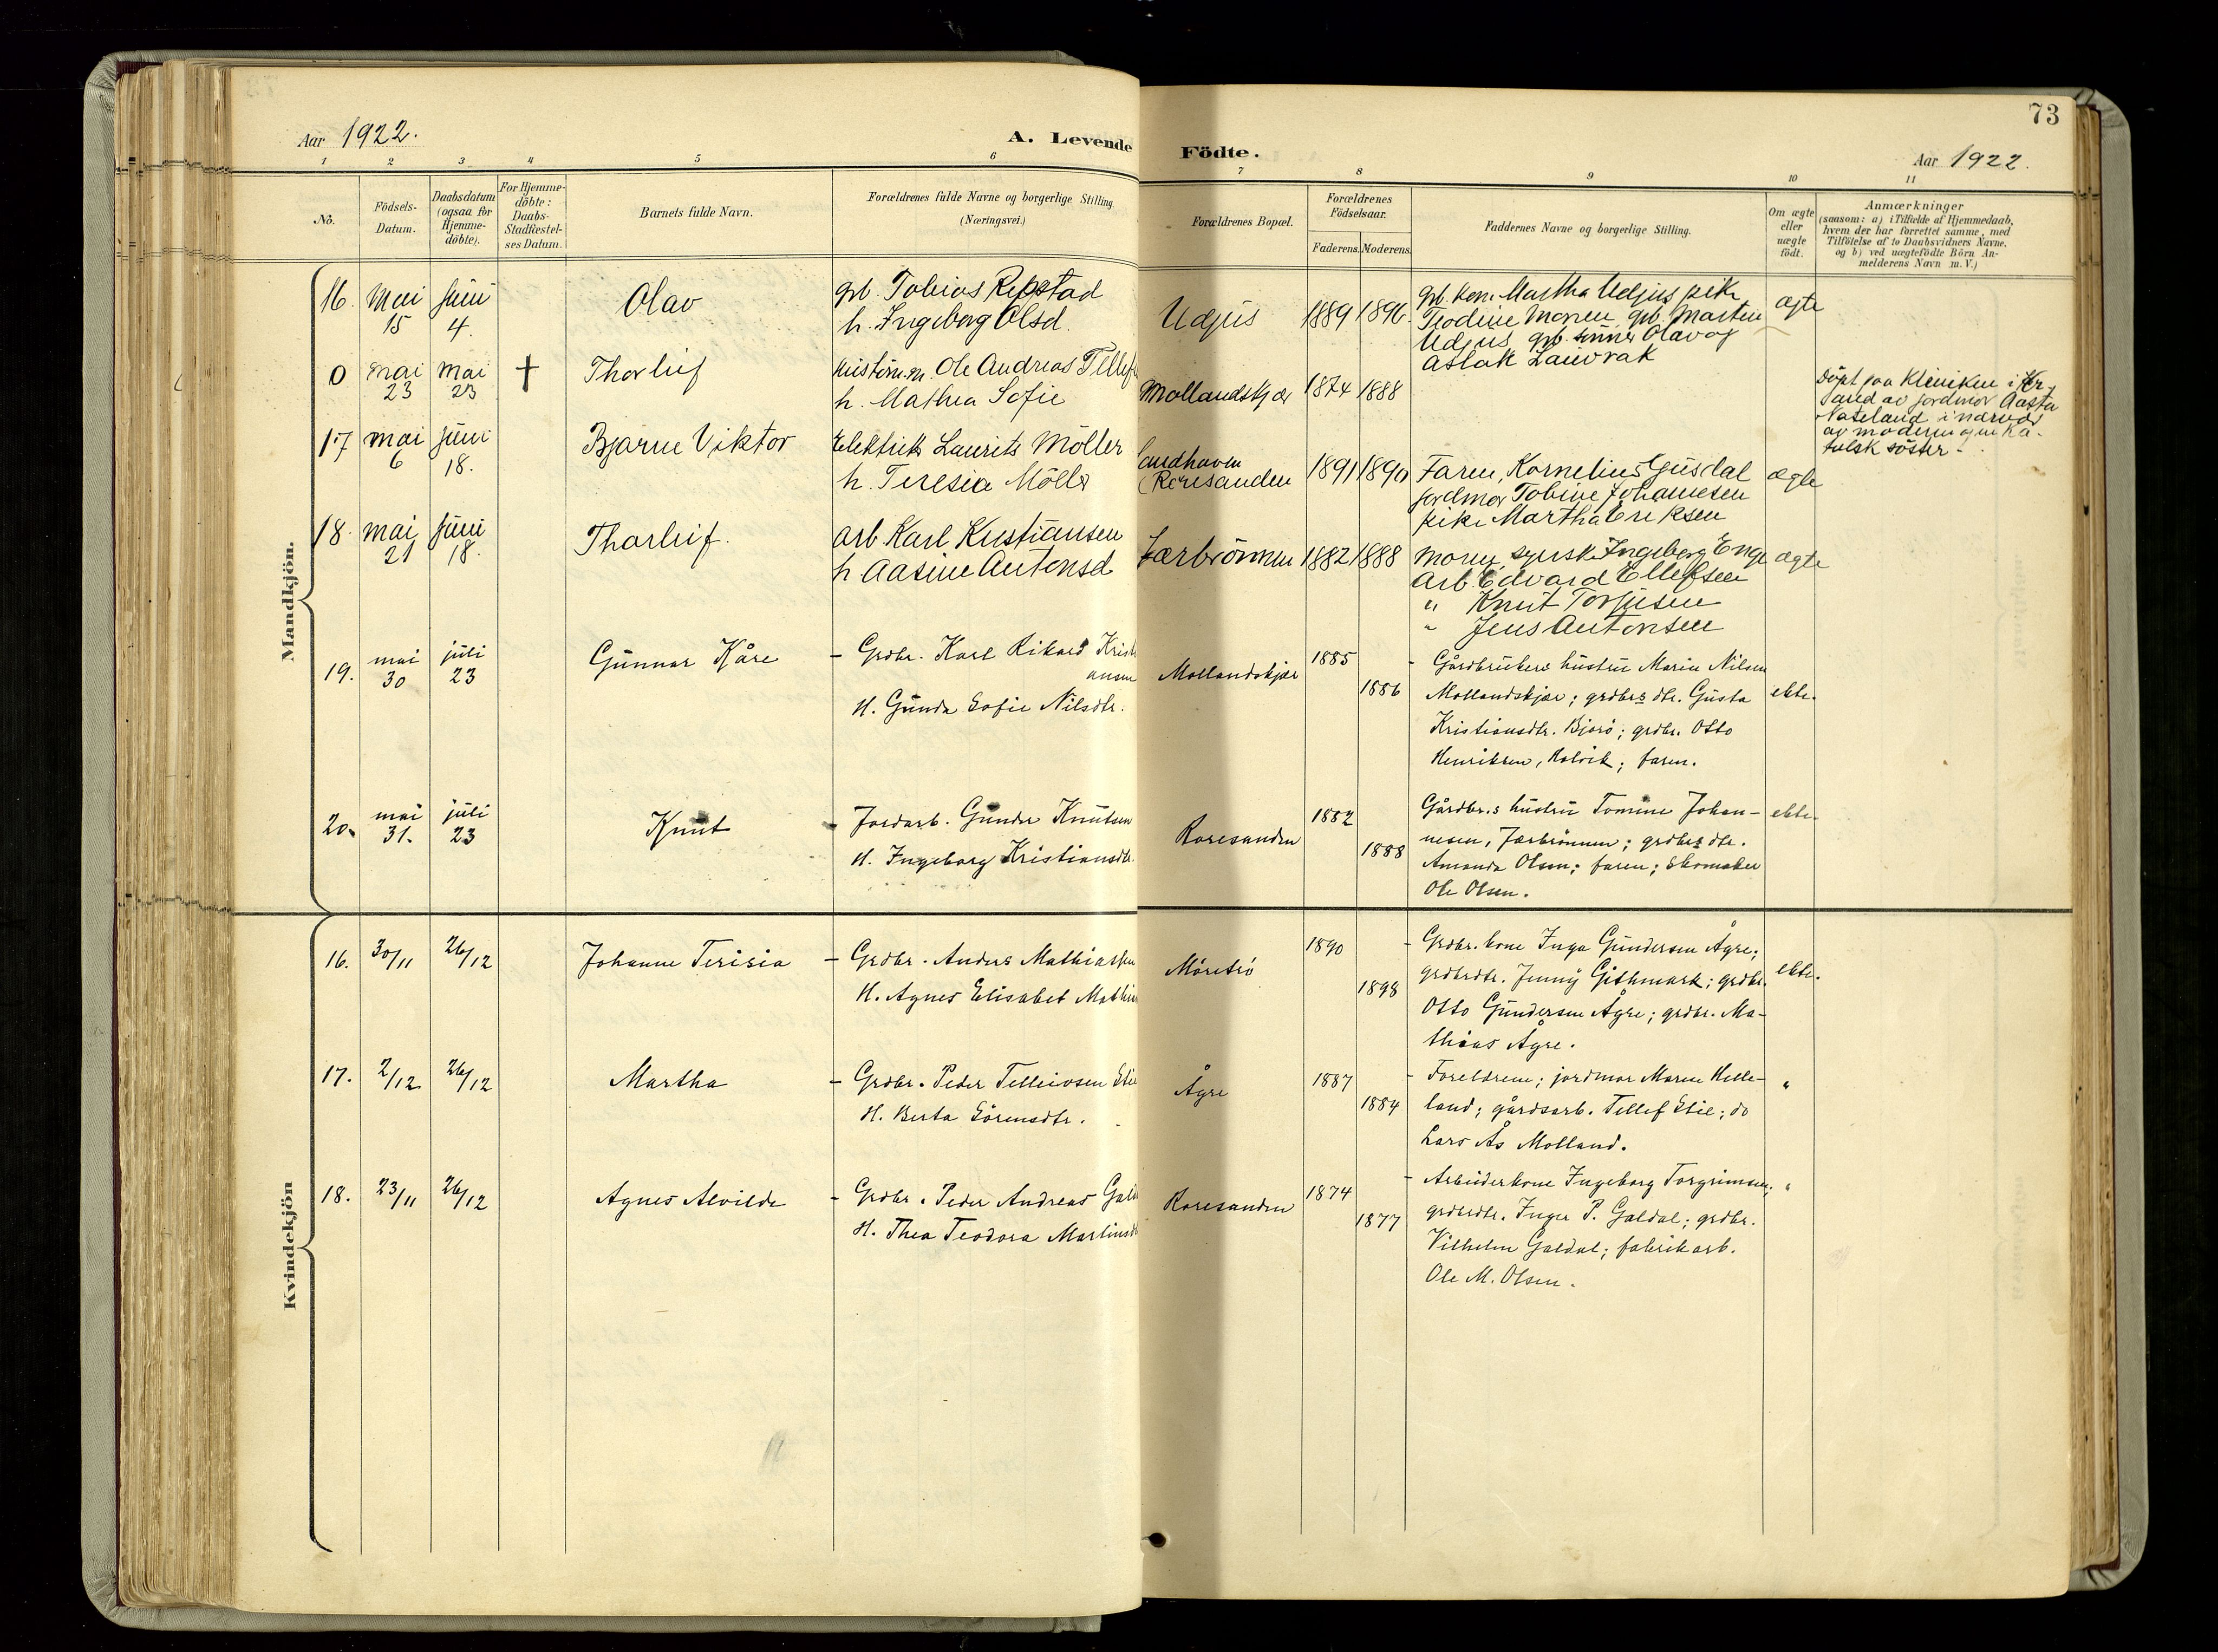 73
Aar 1922.
A. Levende
Födte.
Aar 1922.
1 2 3 4 5 6 7 8 9 10 11
No.
Födsels-
Datum.
Daabsdatum
(ogsaa for
Hjemme-
döbte).
For Hjemme-
döbte:
Daabs-
Stadfæstel-
ses Datum.
Barnets fulde Navn.
Forældrenes fulde Navne og borgerlige Stilling
(Næringsvei.)
Forældrenes Bopæl.
Forældrenes
Födselsaar.
Faderens. Moderens.
Faddernes Navne og borgerlige Stilling.
Om ægte
eller
uægte
födt.
Anmærkninger
(saasom: a) i Tilfælde af Hjemmedaab,
hvem der har forrettet samme, med
Tilföielse af to Daabsvidners Navne,
og b) ved uægtefödte Börn An-
melderens Navn m. V.)
Mandkjön.
16. Mai 15 Juni 4. Olav
gb. Tobias Repstad
h. Ingeborg Olsd.
Udjus 1889 1896
gb. kone Martha Udjus pike
Teodine Monen gb. Marten
Udjus gb. sønner Olav og
Aslak Lauvrak
ægte
0 mai 23 mai 23 † Thorleif
Ole Andreas Tellef
h. Mathea Sofie
Mollandskjær 1874 1888
Döpt paa Kliniken i Kr.
sand av jordmor Aasta
Nateland i nærvær
av moderen og en ka-
tolsk söster -
17 mai 6 juni 18. Bjarne Viktor
Elektrik Laurits Möller
h. Teresia Möller
Sandhaven
(Roresanden 1891 1890
Faren, Kornelius Gusdal
jordmor Tobine Johannesen
pike Martha Eriksen
ægte
18. mai 21 juni 18. Thorleif.
arb Karl Kristiansen
h Aasine Antonsd
Færbrönnen 1882 1888
Moren, syerske Ingeborg Enge
Arb. Edvard Ellefsen
" Knut Torjusen
" Jens Antonsen
ægte
19. mai 30 juli 23 Gunnar Kåre
- Grdbr. Karl Rikard Kristi
ansen
H. Gunda Sofie Nilsdtr.
Mollandskjær 1885 1886
- Gårdbrukers hustru Marie Nilsen
Mollandskjær; grdbrs dtr. Gusta
Kristiansdtr. Bjorö; grdbr. Otto
Henriksen, Kalvik; faren.
ekte.
20. mai 31. juli 23 Knut
- Jordarb. Gunder Knutsen
H. Ingeborg Kristiansdtr.
Roresanden 1882 1888
Gårdbr.s hustru Tomine Johan-
nesen, Færbrönnen; grdbrs dtr.
Amanda Olsen; faren; Skomaker
Ole Olsen.
ekte.
Kvindekjön
16. 30/11 26/12 Johanne Terisia
- Grdbr. Anders Mathiassen
H. Agnes Elisabet Mathia
Möretrö 1890 1898
- Grdbr. kone Inga Gundersen Ågre;
grdbrdtr. Jenny Githmark; grdbr.
Otto Gundersen Ågre; grdbr. Ma-
thias Ågre.
ekte.
17. 2/12 26/12 Martha
- Grdbr. Peder Telleivsen Stie
H. Berta Sörensdtr.
Ågre 1887 1884
- Foreldrene; jordmor Maren Helle-
land; gårdsarb. Tellef Stie; do
Lars Ås Molland.
"
18. 23/11 26/12 Agnes Alvilde
- Grdbr. Peder Andreas Gald
H. Thea Teodora Martinsdt
Roresanden 1874 1877
- Arbeiderkone Ingeborg Torgrimsen;
grdbrdtr. Inger P. Galdal; grdbr.
Vilhelm Galdal; fabrikarb.
Ole M. Olsen.
"